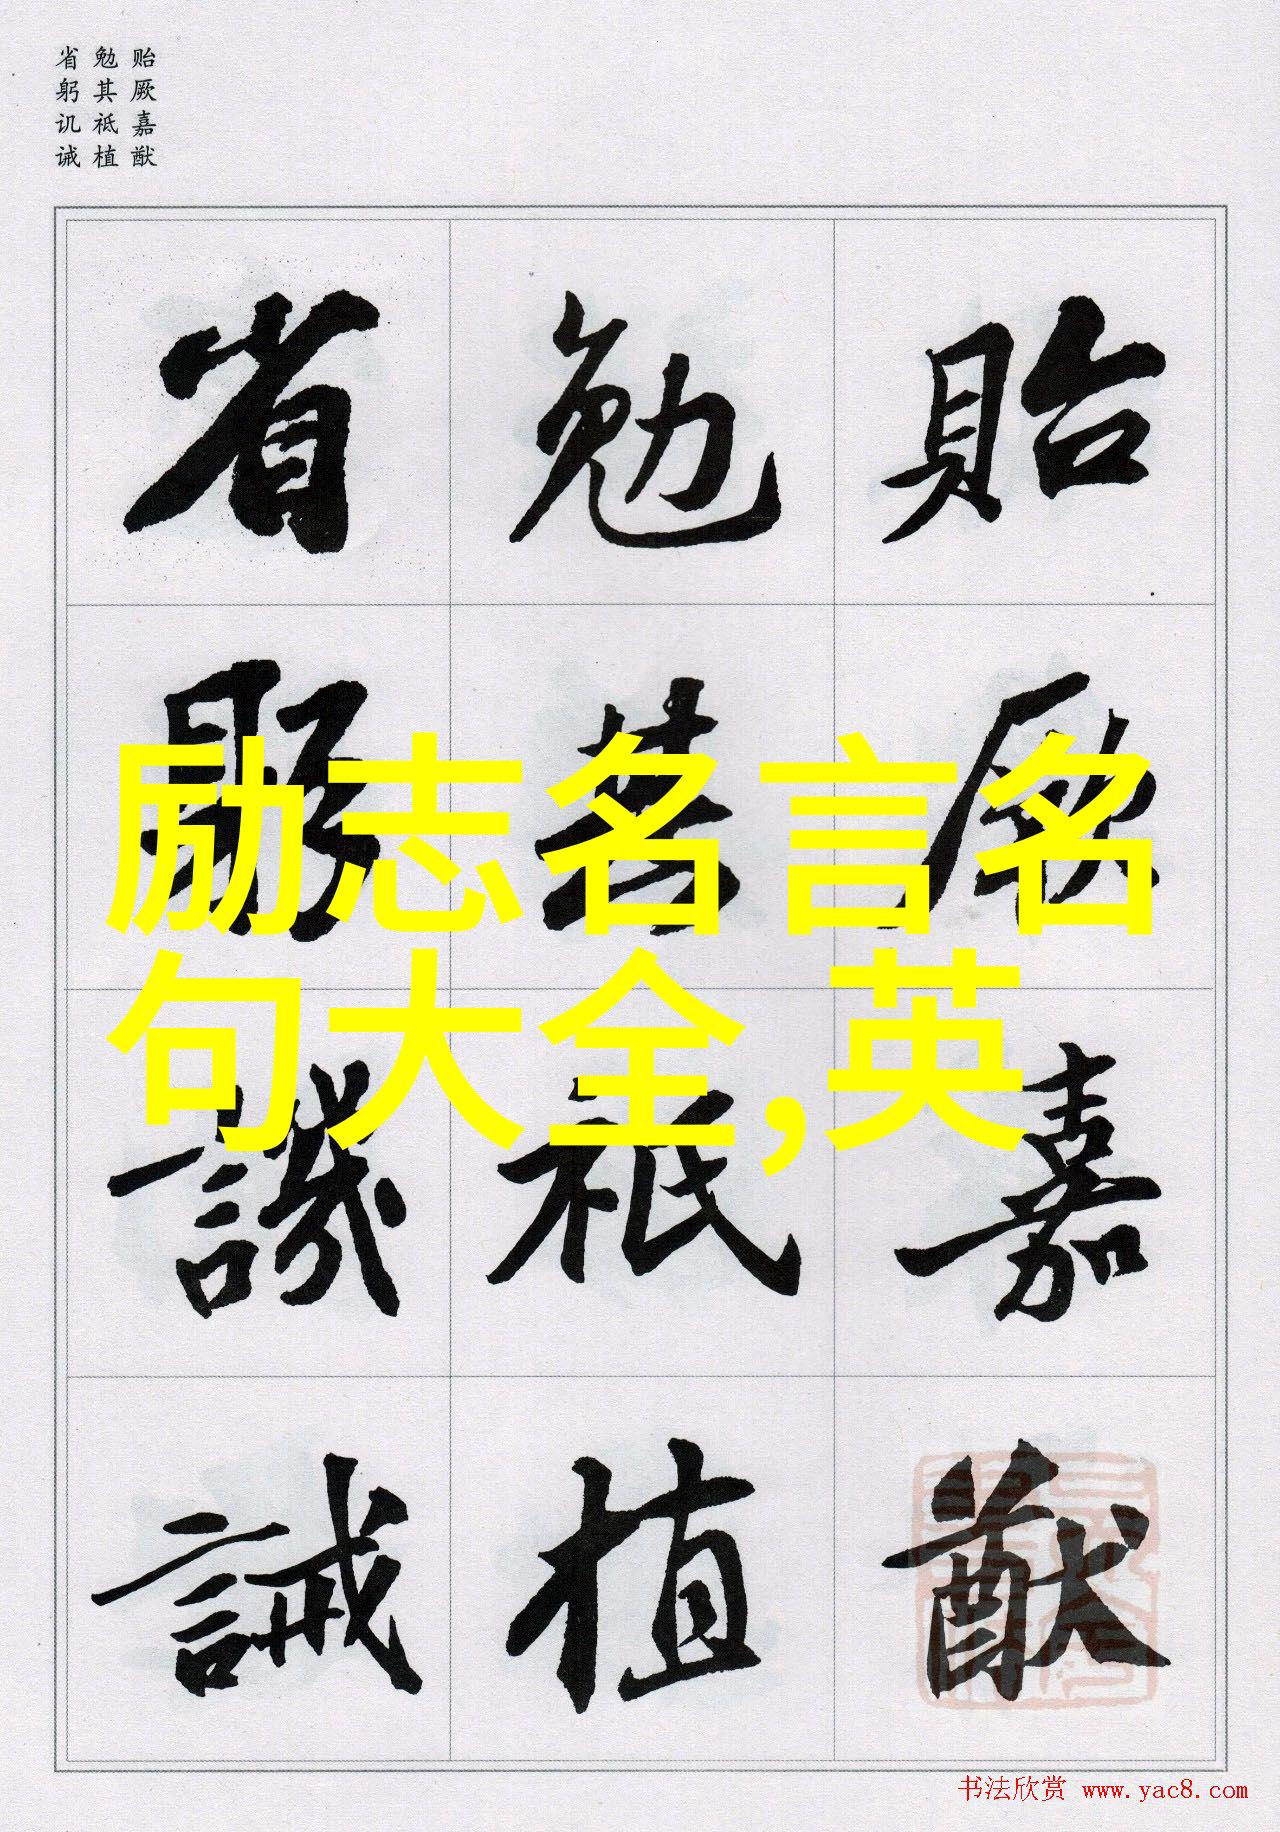 贻厥嘉猷
勉其祗植
省躬讥诫
貽厥嘉猷
勉其祗植
省躬譏誡
励志名言名
句大全,英
书法欣赏 www.yac8.com